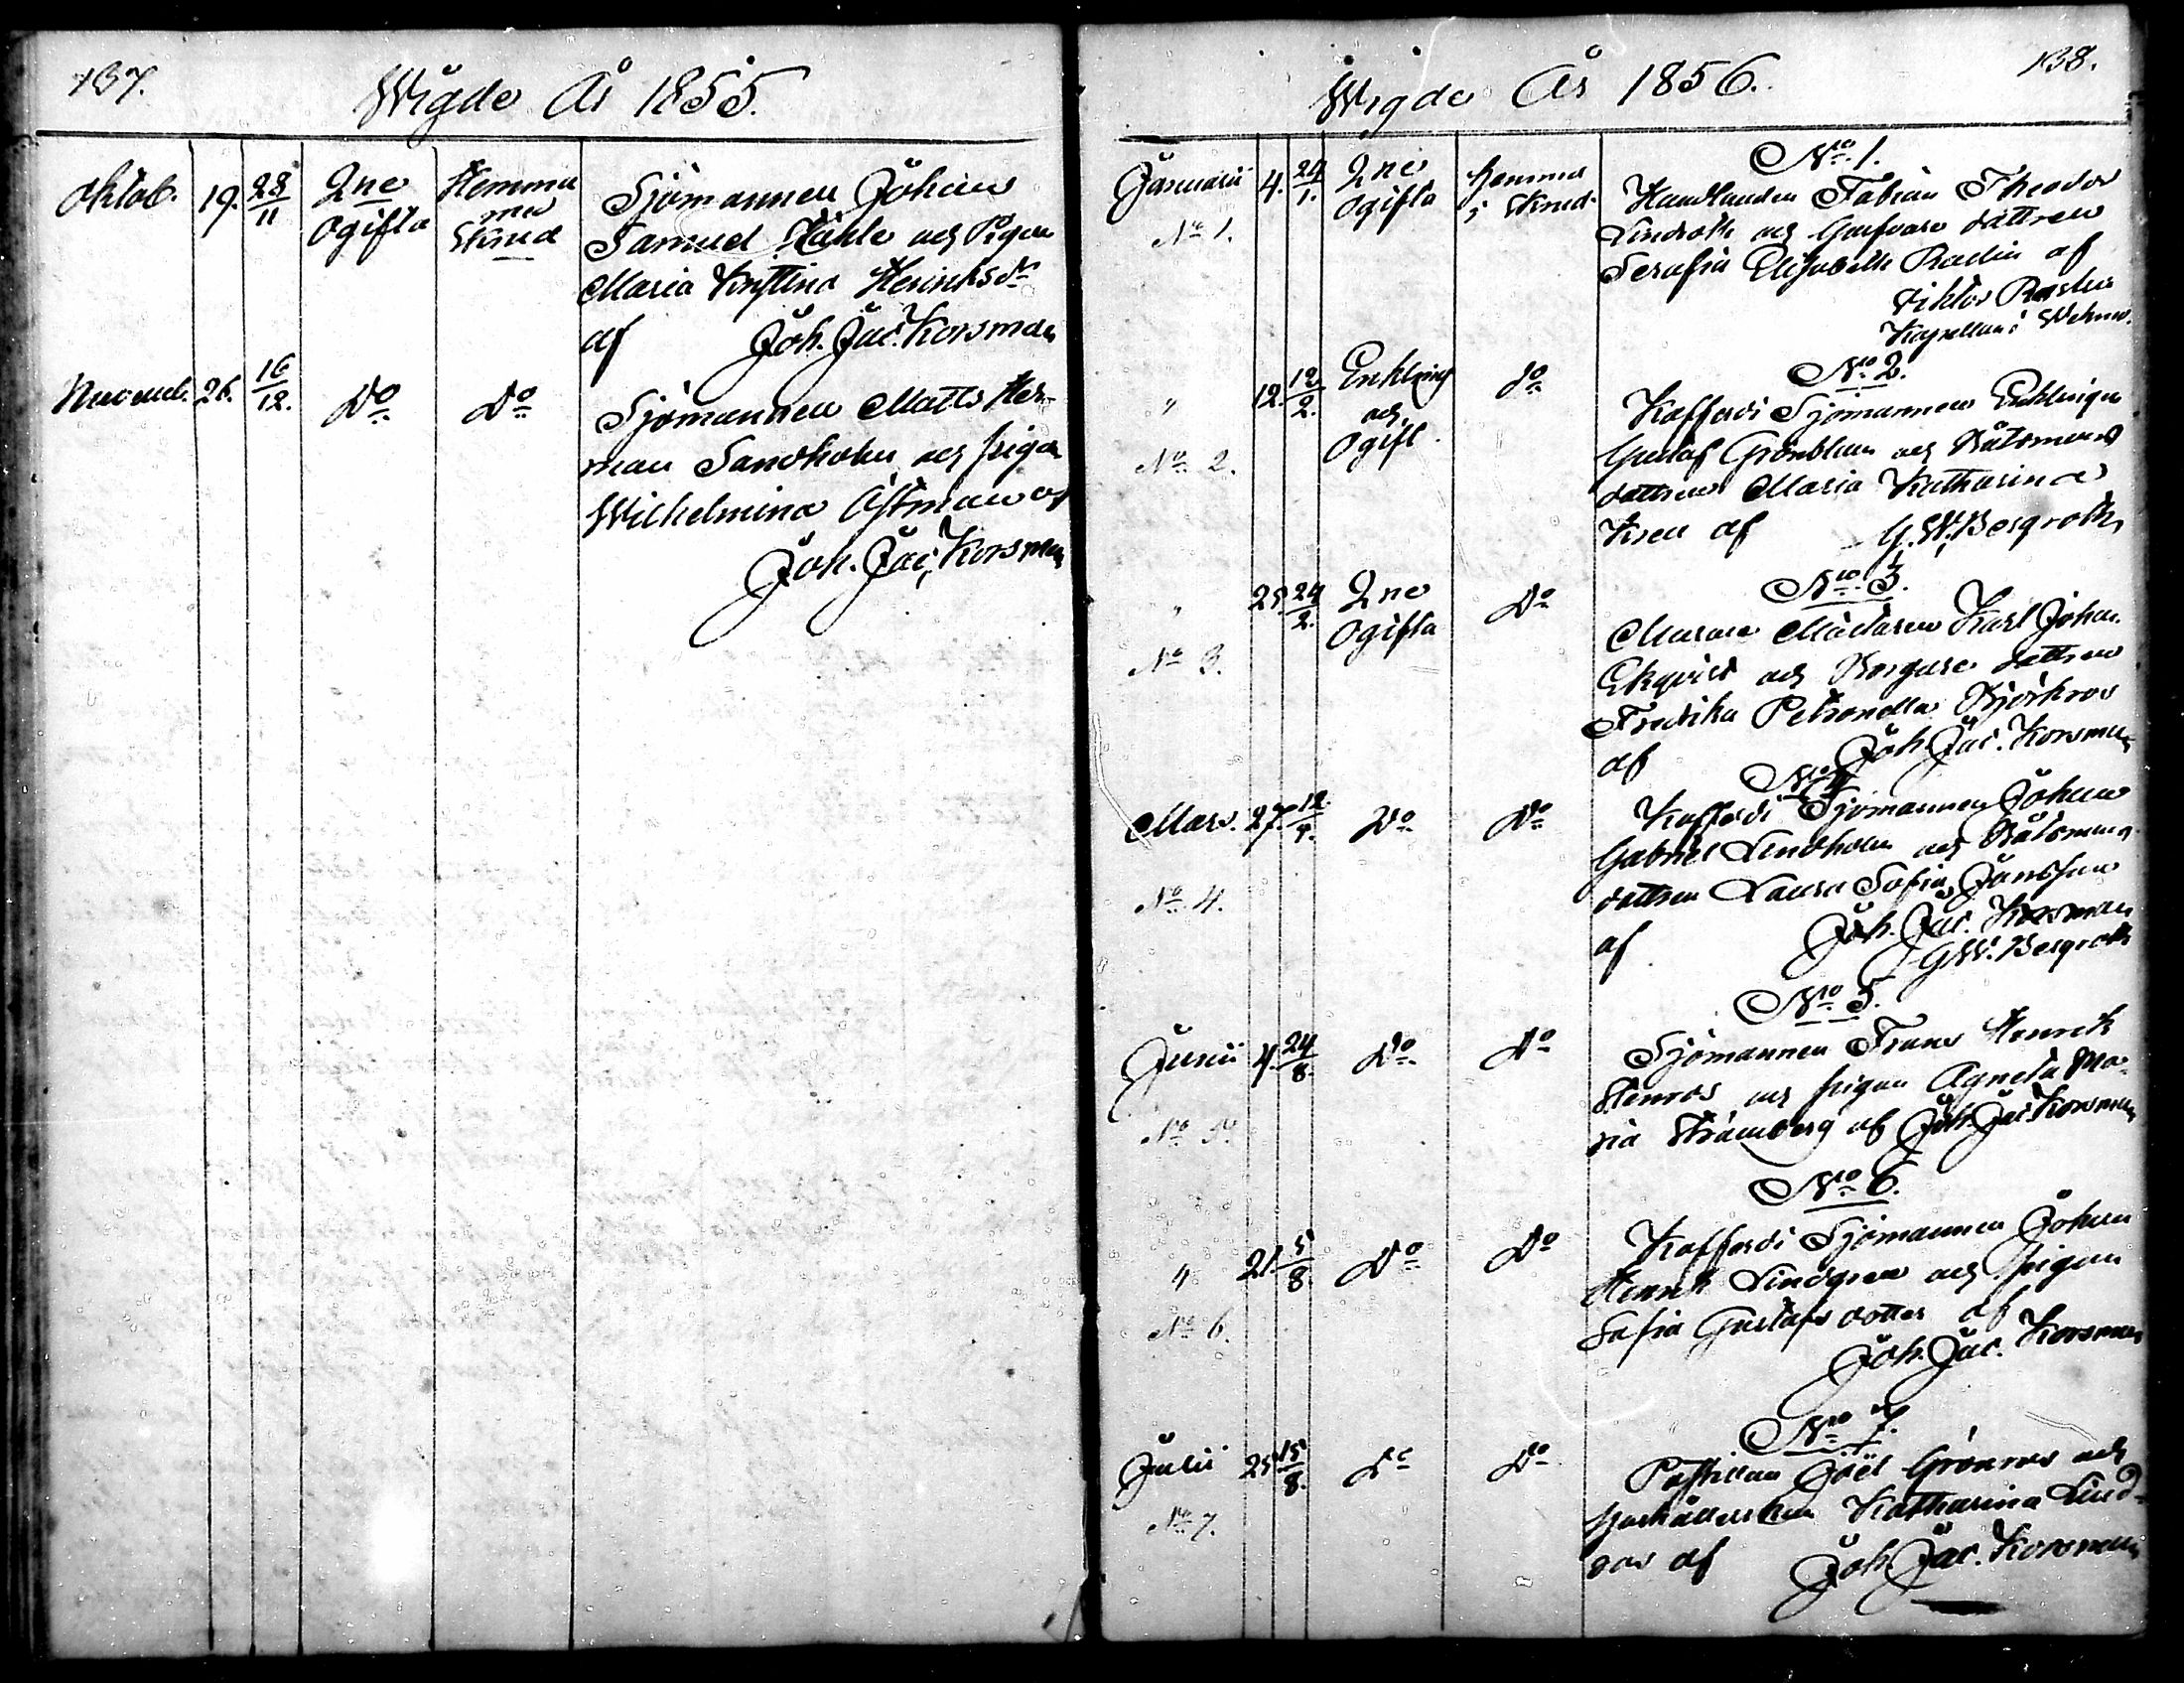 137.
Wigde År 1855.
Oktob. 19. 28/11 2ne Ogifta Hemma med Skrud
Sjömannen Johan
Samuel Ståhle och Pigan
Maria Kristina Henriksdr
af Joh. Jac. Korsman
Novemb. 26. 16/12. Do Do
Sjömannen Matts Her-
man Sandholm och pigan
Wilhelmina Östman af
Joh. Jac. Korsman
138.
Wigde År 1856.
Januarii 4. 24/1. 2ne Ogifta hemma i Skrud
No 1.
No 1.
Handlanden Fabian Theodor
Lindroth och Garfvare dottren
Serafia Elisabeth Radin af
Viktor
Kapellan i Wehmo.
" 12. 12/2. Enkling och Ogift. do
No 2.
No 2.
Kofferdi Sjömannen Enklingen
Gustaf Grönblom och Båtsmans
dottren Maria Katharina
af G. W. Bergroth
" 25. 24/2. 2ne Ogifta Do
No 3.
No 3.
Murare Mästaren Karl Johan
Ekqvist och Borgare dottren
Fredrika Petronella Björkroos
af Joh. Jac. Korsman
Mars. 27. 12/4. Do Do
No 4.
No 4
Kofferdi Sjömannen Johan
Gabriel Lindholm och Båtsmans
dottren Laura Sofia Jansson
af Joh. Jac. Korsman
G W. Bergroth
Junii 4. 24/8. Do Do
No 5.
No 5.
Sjömannen Frans Henrik
Stenros och pigan Agneta Ma-
ria Strömberg af Joh. Jac. Korsman
" 21. 5/8. Do Do
No 6.
No 6.
Kofferdi Sjömannen Johan
Henrik Lindgren och pigan
Sofia Gustafs dotter af
Joh. Jac. Korsman
Julii 25 15/8. Do Do
No 7.
No 7.
Postillon Joël Grönroos och
Hushållerskan Katharina Lind-
ros af Joh. Jac. Korsman